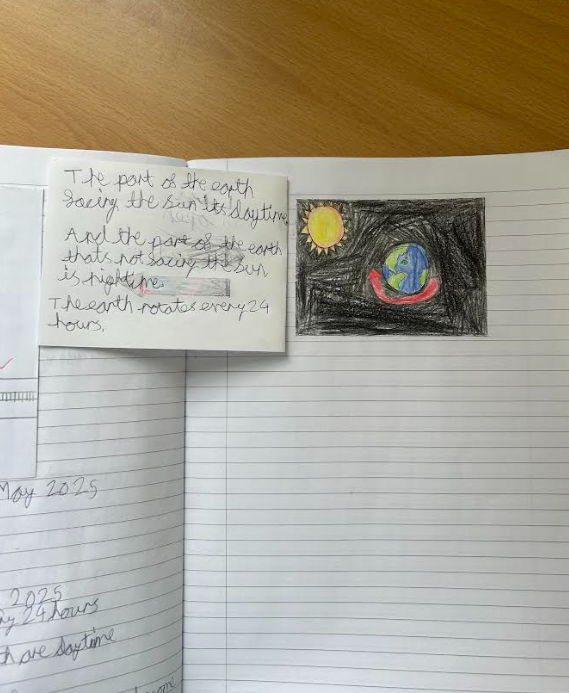 The part of the earth
facing the sun its daytime
And the part of the earth
thats not facing the sun
is nightime.
The earth rotates every 24
hours.
May 2025
2025
24 hours
are daytime